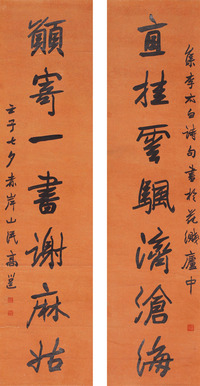 集李太白詩句書於花濺廬中
直挂雲颿濟滄海
願寄一書謝麻姑
壬子七夕赤岸山民高邕